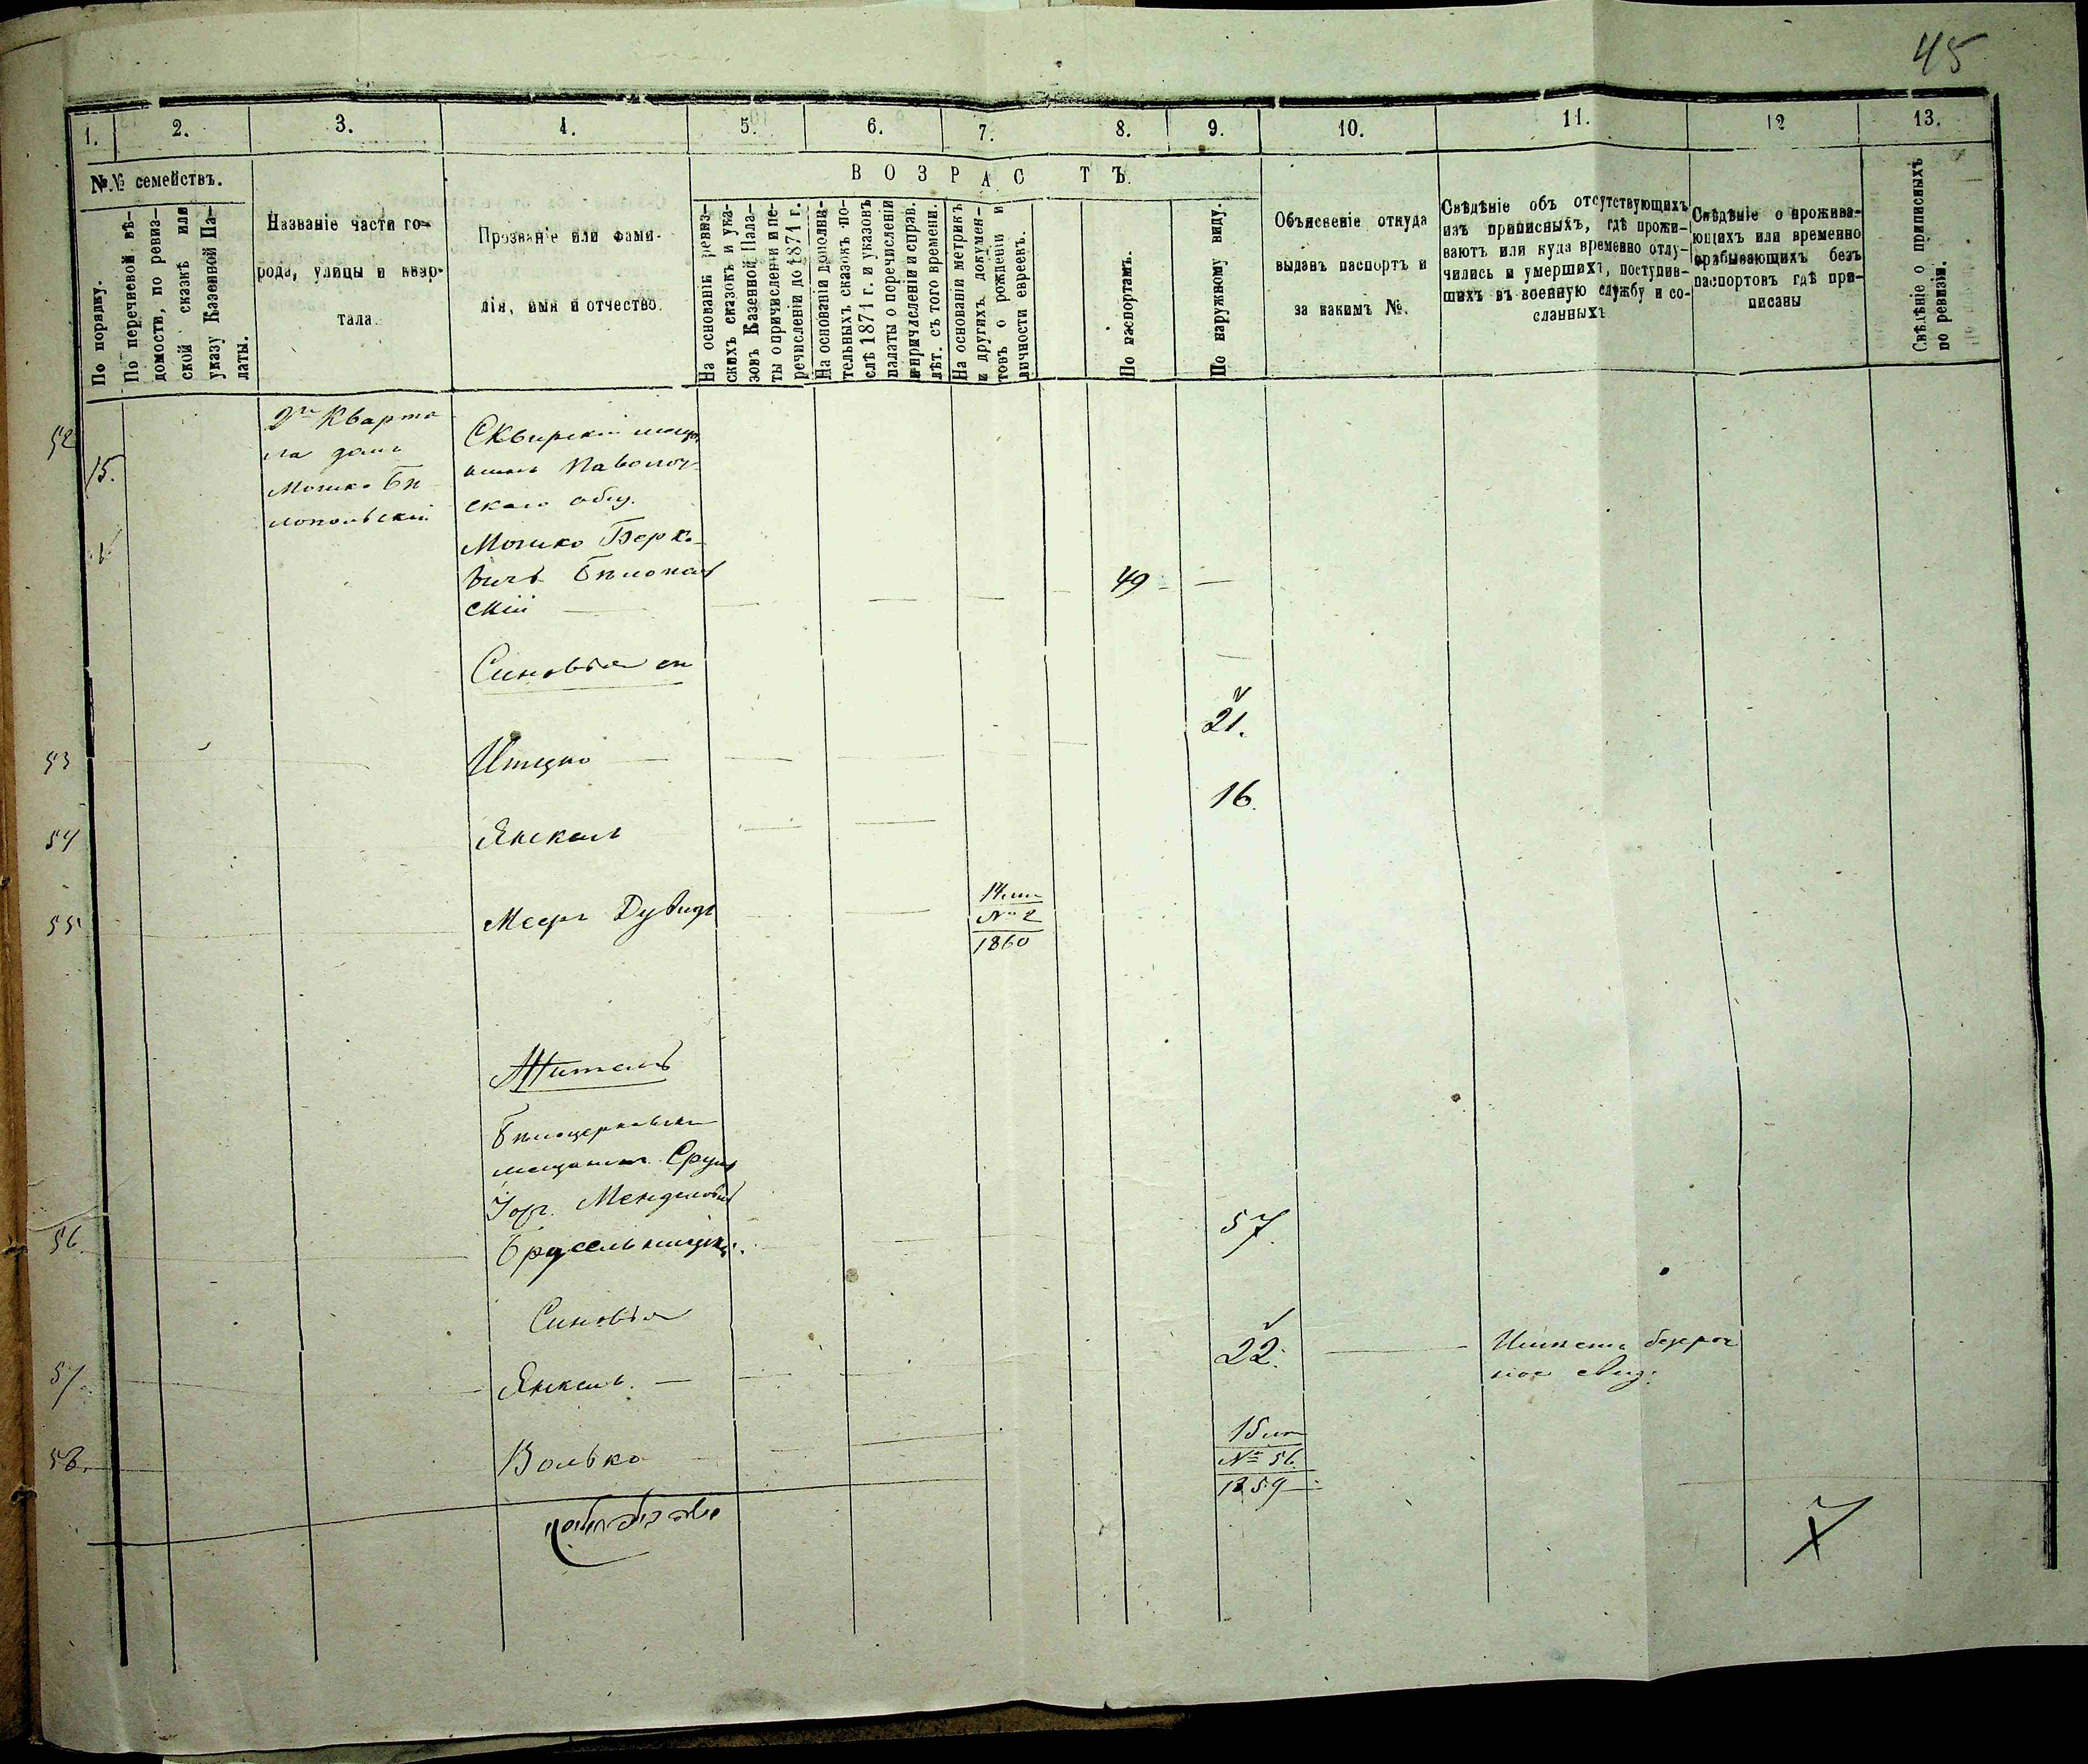 45
1. 2. 3. 4. 5. 6. 7. 8. 9. 10. 11. 12 13.
№№ семействъ.
По порядку.
По перечневой вѣ-
домости, по ревиз-
ской сказкѣ или
указу Казенной Па-
латы.
Названіе части го-
рода, улицы и квар-
тала.
Прозваніе или фами-
лія, имя и отчество.
ВОЗРАСТЪ.
На основаніи ревиз-
скихъ сказокъ и ука-
зовъ Казенной Пала-
ты о причисленіи и пе-
речисленіи до 1871 г.
На основаніи дополни-
тельныхъ сказокъ по-
слѣ 1871 г. и указовъ
палаты о перечисленіи
и причисленіи и справ.
лѣт. съ того времени.
На основаніи метрикъ
и другихъ докумен-
товъ о рожденіи и
личности евреекъ.
По паспортамъ.
По наружному виду.
Объясненіе откуда
выданъ паспортъ и
за какимъ №.
Свѣдѣніе объ отсутствующихъ
изъ приписныхъ, гдѣ прожи-
ваютъ или куда временно отлу-
чились и умершихъ, поступив-
шихъ въ военную службу и со-
сланныхъ
Свѣдѣніе о прожива-
ющихъ или временно
пребывающихъ безъ
паспортовъ гдѣ при-
писаны
Свѣдѣніе о приписныхъ
по ревизіи.
52
15.
Кварта
ла домъ
Мошко Бѣ
лопольскій
Сквирскій мещ
анинъ Паволоч
скаго общ.
Мошко Берко
вичъ Бѣлополь
скій
49
Синовья ею
53
Ицко
21.
54
Янкель
16.
55
Меер Дувидъ
14 лѣт
№ 2
1860
Житель
Бѣлоцерковскій
мещанинъ Сруль
Менделовъ
56
57.
Синовья
57
Янкель.
22.
Имѣетъ безсроч
ное свид.
58.
Волько
15 лѣт
№ 56
1859